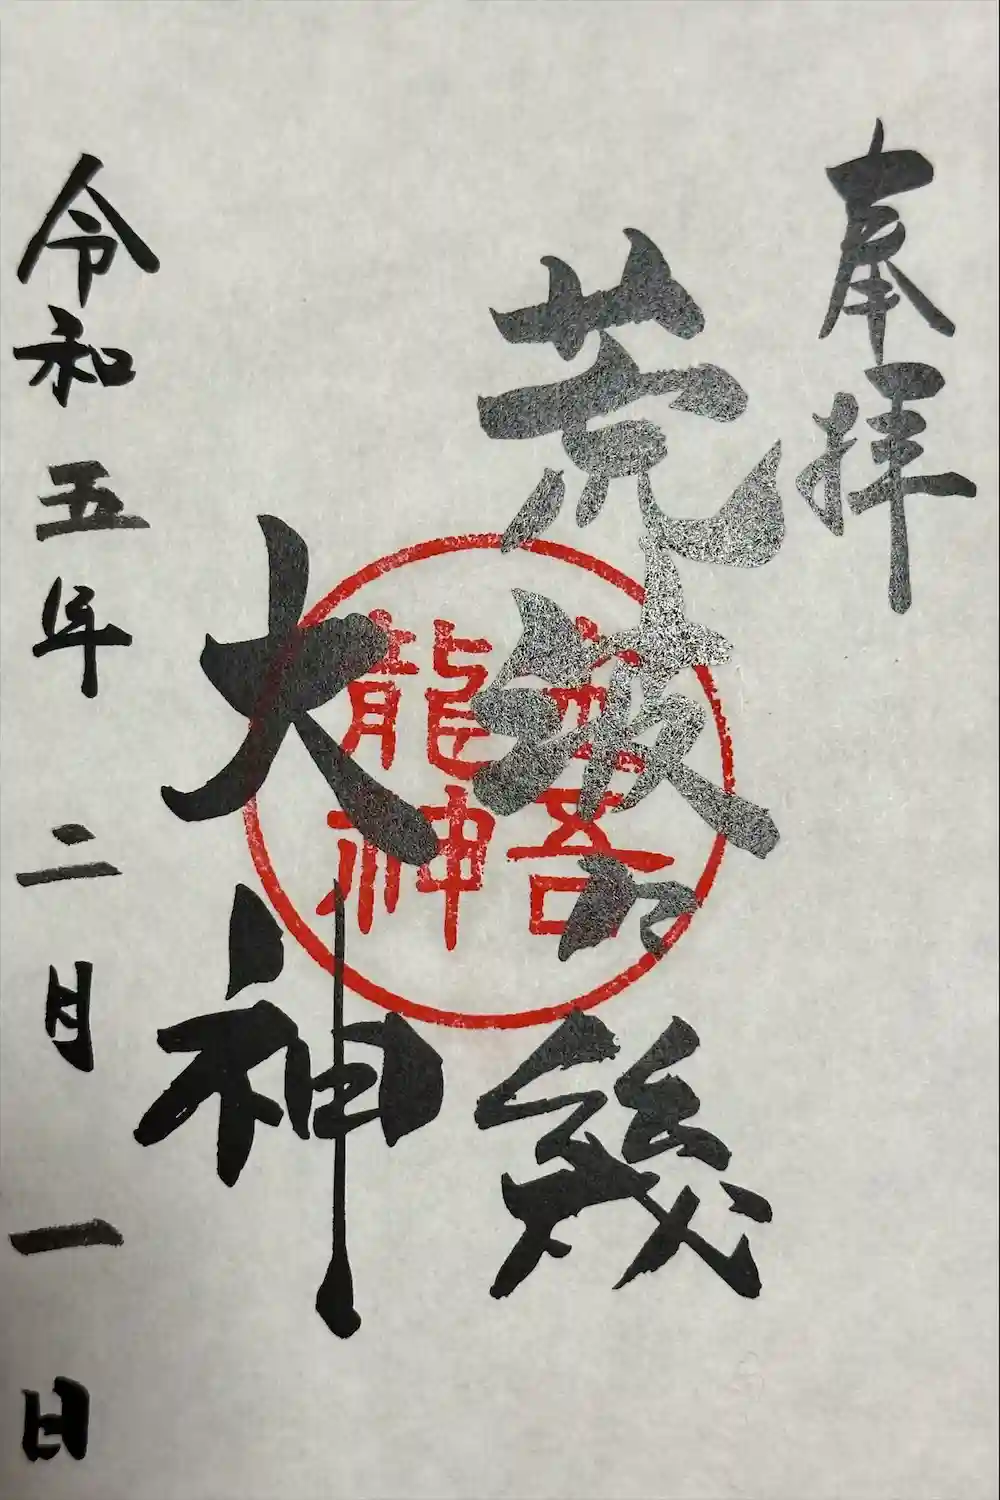 奉拝
荒波々幾
大神
龍神
令和五年二月一日